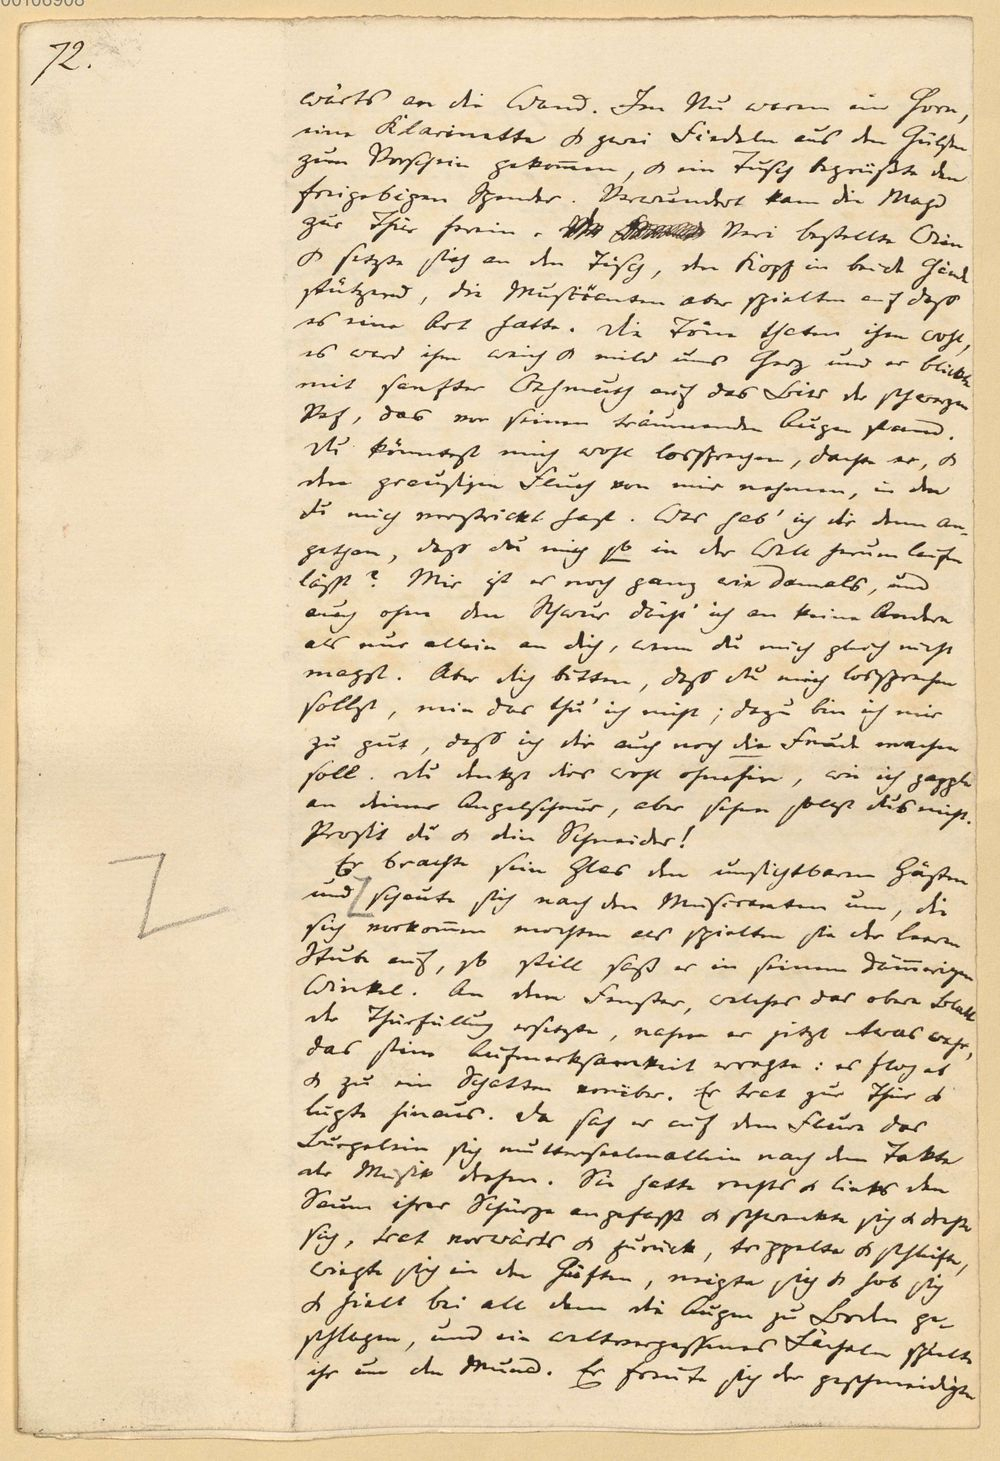 00106908
72.
wärts an die Wand. Im Nu waren ein Horn,
eine Klarinette & zwei Fiedeln aus den Hülsen
zum Vorschein gekom̅en, & ein Tusch begrüßte den
freigebigen Spender. Verwundert kam die Magd
zur Thür herein. Veri bestellte Wein
& setzte sich an den Tisch, den Kopf in beide Hände
stützend, die Musikanten aber spielten auf daß
es eine Art hatte. Die Töne thaten ihm wohl,
es ward ihm weich & mild ums Herz und er blickte
mit sanfter Wehmuth auf das Bild der schwarzen
Vef, das vor seinen träumenden Augen stand.
Du könntest mich wohl lossprechen, dachte er, &
den grausigen Fluch von mir nehmen, in den
du mich verstrickt hast. Was hab' ich dir denn an-
gethan, daß du mich so in der Welt herum laufen
läßt? Mir ist es noch ganz wie damals, und
auch ohne den Schwur dächt' ich an keine Andere
als nur allein an dich, wenn du mich gleich nicht
magst. Aber dich bitten, daß du mich lossprechen
sollst, nein das thu' ich nicht; dazu bin ich mir
zu gut, daß ich dir auch noch die Freude machen
soll. Du denkst dir's wohl ohnehin, wie ich zapple
an deiner Angelschnur, aber sehen sollst du's nicht.
Prosit du & dein Schneider!
Er brachte sein Glas den unsichtbaren Gästen
und schaute sich nach den Musikanten um, die
sich vorkom̅en mochten als spielten sie der leeren
Stube auf, so still saß er in seinem däm̅erigen
Winkel. An dem Fenster, welches das obere Blatt
der Thürfüllung ersetzte, nahm er jetzt etwas wahr,
das seine Aufmerksamkeit erregte: es flog ab
& zu ein Schatten vorüber. Er trat zur Thür &
lugte hinaus. Da sah er auf dem Flure das
sich mutterseelenallein nach dem Takte
der Musik drehen. Sie hatte rechts & links den
Saum ihrer Schürze angefaßt & schwenkte sich & drehte
sich, trat vorwärts & zurück, trippelte & schleifte,
wiegte sich in den Hüften, neigte sich & hob sich
& hielt bei all dem die Augen zu Boden ge-
schlagen, und ein weltvergessenes Lächeln spielte
ihr um den Mund. Er freute sich der geschmeidigen